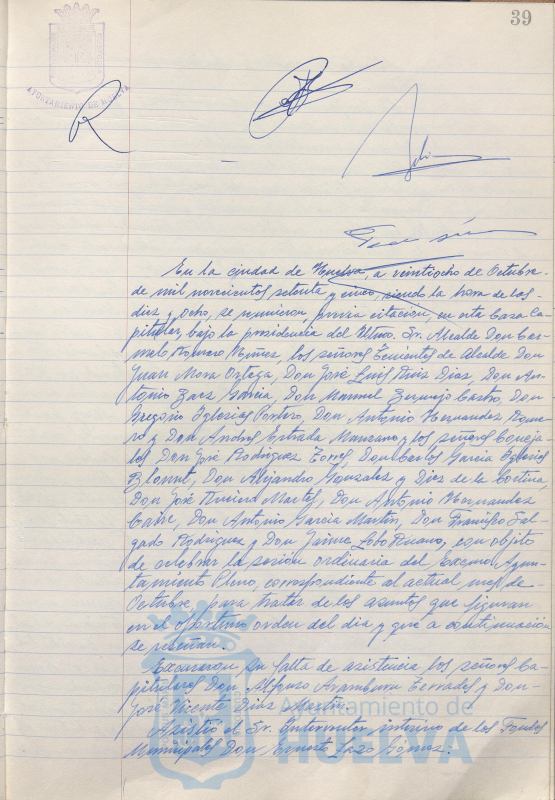 39
AYUNTAMIENTO DE HUELVA
En la ciudad de Huelva, a veintiocho de Octubre
de mil novecientos setenta y cinco, siendo la hora de las
diez y ocho, se reunieron, previa citación, en esta Casa Ca-
pitular, bajo la presidencia del Iltmo. Sr. Alcalde Don Car-
melo Romero Núñez, los señores Tenientes de Alcalde Don
Juan Mora Ortega, Don José Luis Ruiz Diaz, Don An-
tonio Garcia, Don Manuel Bermejo Castro, Don
Gregorio Iglesias Don Antonio Hernandez
y Don Andres Estrada Manzano y los señores Conceja-
les Don José Rodriguez Torres, Don Carlos Garcia Iglesias
Don Alejandro Gonzalez y Diez de la Cortina,
Don José Don Antonio Hernandez
Don Antonio Garcia Martin, Don Francisco Sal-
gado Rodriguez y Don Jaime Lobo Ruano, con objeto
de celebrar la sesión ordinaria del Excmo. Ayun-
tamiento Pleno, correspondiente al actual mes de
Octubre, para tratar de los asuntos que figuran
en el oportuno orden del dia y que a continuación
se reseñan.
Excusaron su falta de asistencia los señores Ca-
pitulares Don Alfonso Aramburu Terrades y Don
José Vicente Diaz Martin.
Asistió el Sr. Interventor interino de los Fondos
Municipales Don Ernesto Lazo Gómez.
Ayuntamiento de
HUELVA